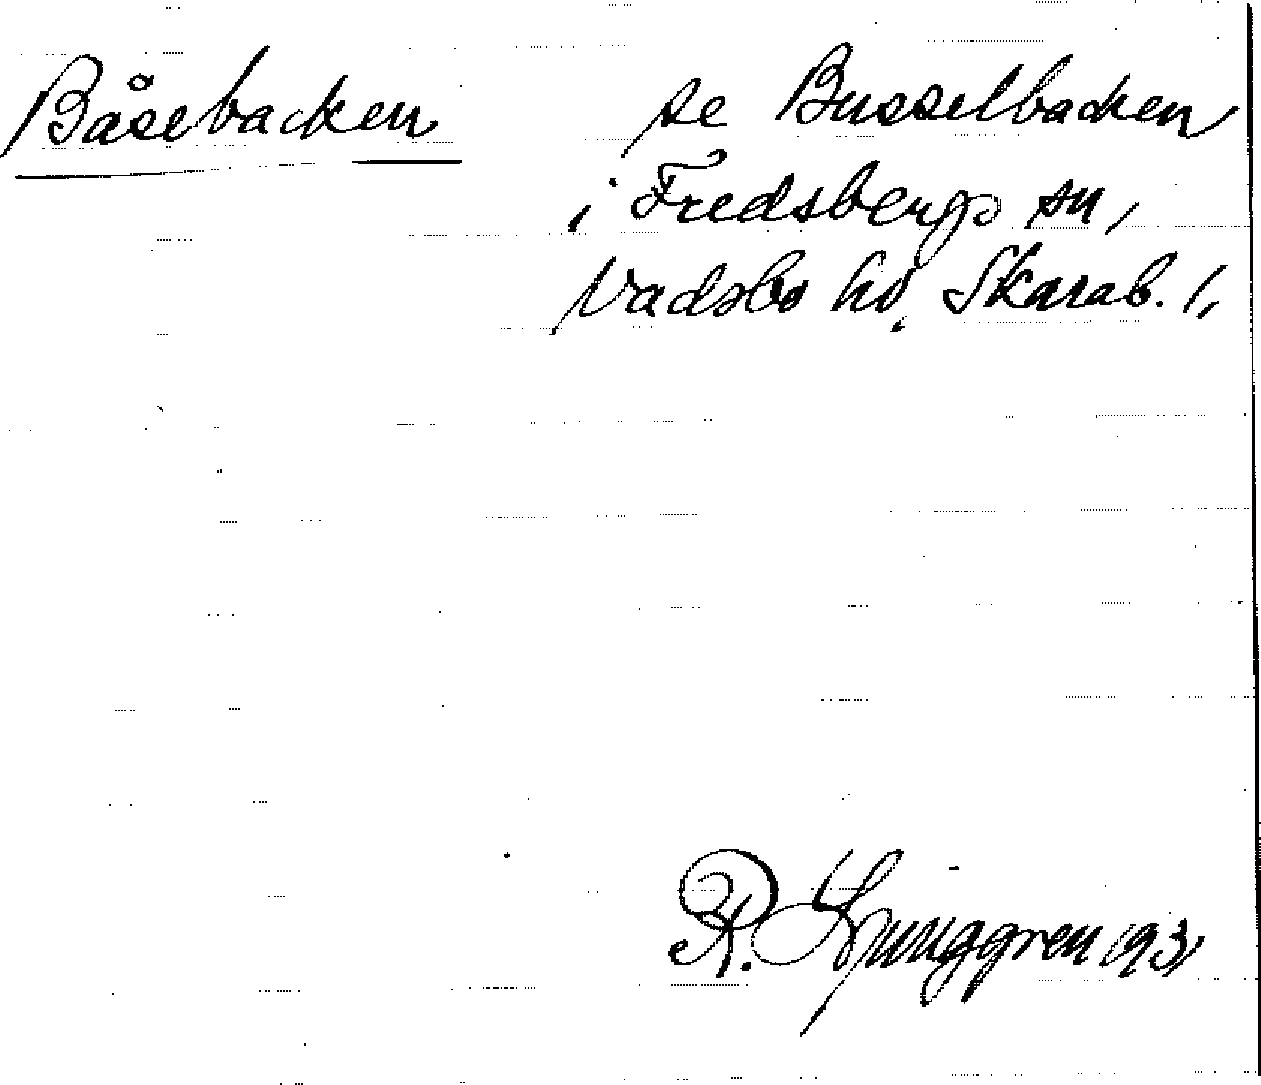 Båsebacken se Busselbacken
i Fredsbergs sn,
Vadsbo hd, Skarab. l.
R. Ljunggren 1931